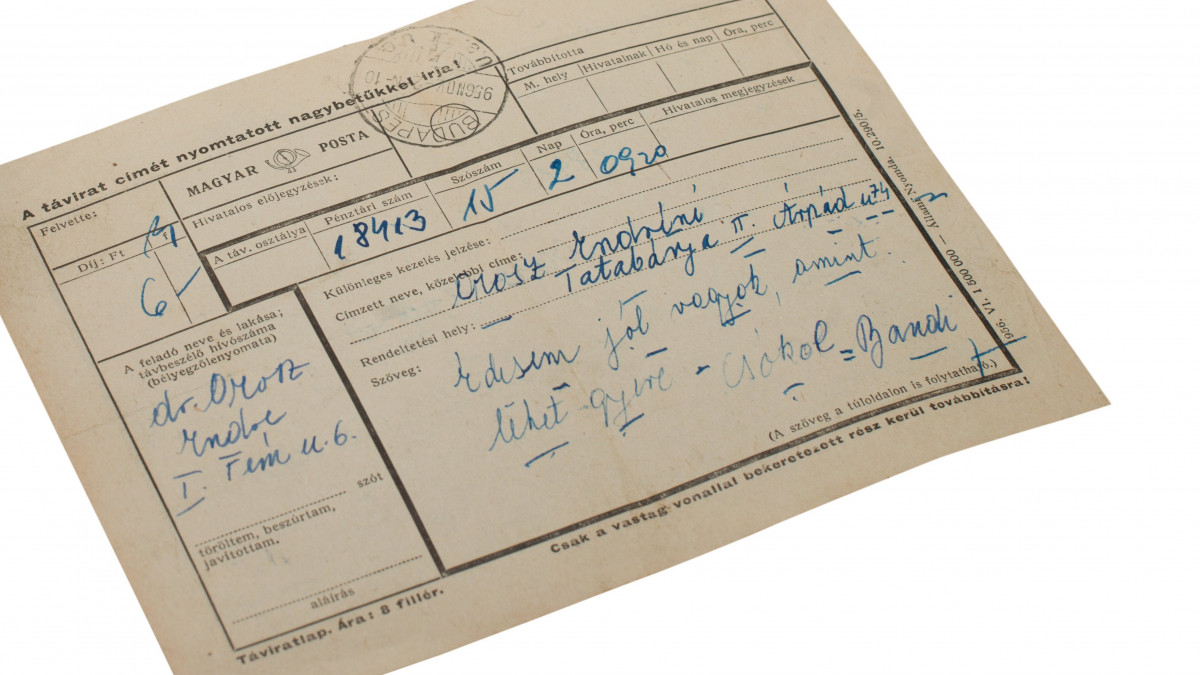 A távirat címét nyomtatott nagybetűkkel írja!
MAGYAR POSTA
BUDAPES
956 NOV
Továbbította
M. hely Hivatalnak Hó és nap Óra, perc
Felvette:
Díj: Ft
6 -
Hivatalos előjegyzések:
A táv. osztálya Pénztári szám Szószám Nap Óra, perc Hivatalos megjegyzések
18413 15 2 0920
Különleges kezelés jelzése:
Címzett neve, közelebbi címe:
Orosz Endréné
Tatabánya II. Árpád u 74
Rendeltetési hely:
Szöveg:
Édesem jól vagyok, amint
lehet gyere - Csókol = Bandi
(A szöveg a túloldalon is folytatható.)
Csak a vastag vonallal bekeretezett rész kerül továbbításra!
A feladó neve és lakása;
távbeszélő hívószáma
(bélyegzőlenyomata)
dr. Orosz
Endre
I. Fém u. 6.
szót
töröltem, beszúrtam,
javítottam.
aláírás
Táviratlap. Ára: 8 fillér.
1956. VI. 1 500 000 — Állami Nyomda. 10.290/5.